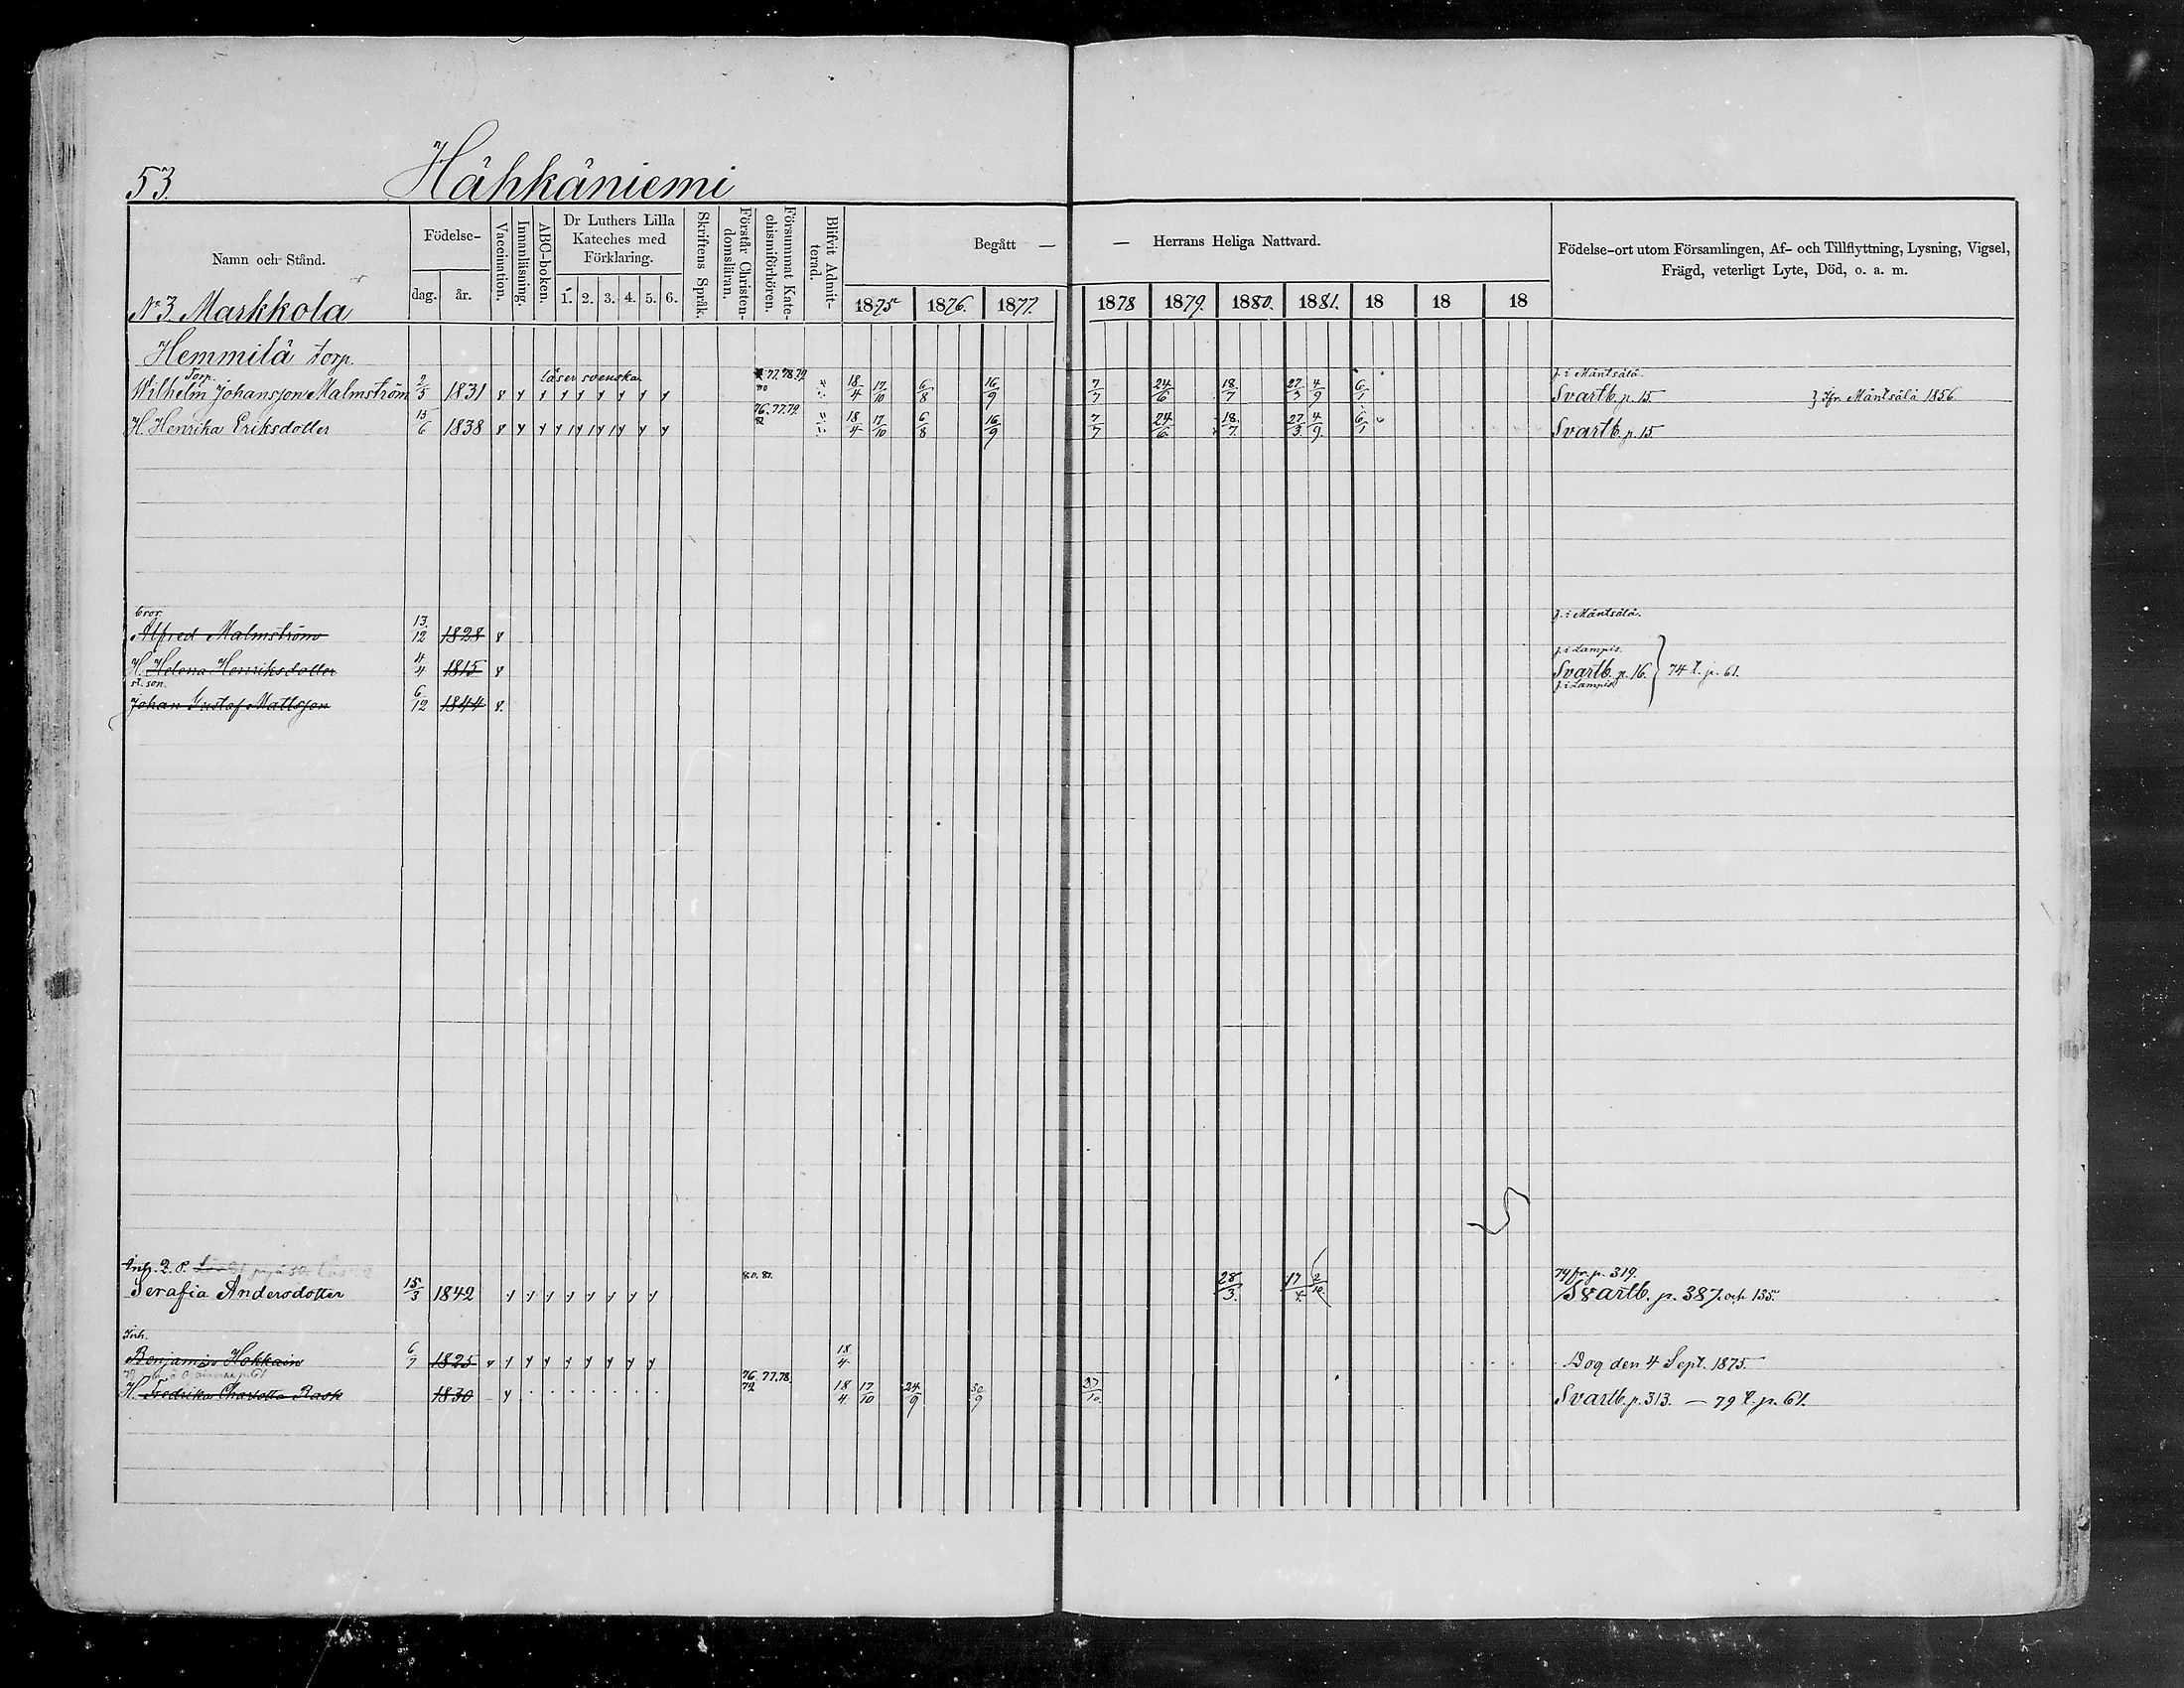 53. Hähkäniemi
Namn och Stånd.
Födelse-
dag.
år.
Vaccination.
Innanläsning.
ABC-boken.
Dr Luthers Lilla
Kateches med
Förklaring.
1. 2. 3. 4. 5. 6.
Skriftens Språk.
Förstår Christen-
domsläran.
Försummat Kate-
chismiförhören.
Blifvit Admit-
terad.
Begått — — Herrans Heliga Nattvard.
1875 1876. 1877. 1878 1879. 1880. 1881. 18 18 18
Födelse-ort utom Församlingen, Af- och Tillflyttning, Lysning, Vigsel,
Frägd, veterligt Lyte, Död, o. a. m.
No 3 Markkola
Hemmilä torp.
Torp. läser svenska 77.78.79 f. i Mäntsälä.
Wilhelm Johansson Malmström 2/5 1831 18/4 17/10 6/8 16/9 7/7 24/6 18/7 27/3 4/9 6/1 Svartb. p. 15 } Ifr. Mäntsälä 1856
76.77.79
H. Henrika Eriksdotter 15/6 1838 18/4 17/10 6/8 16/9 7/7 24/6 18/7 27/3 4/9 6/1 Svartb. p. 15
bror f. i Mäntsälä.
Alfred Malmström 13/12 1828
f. i Lampis.
H. Helena Henriksdotter 4/4 1815 Svartb. p. 16. } 74 t. p. 61.
st. son. f. i Lampis
Johan Gustaf Mattsson 6/12 1844
Inh. 2. P. 80. 81. 79 fr. p. 319.
Serafia Andersdotter 15/3 1842 28/3 17/4 2/10 Svartb. p. 387. och 135.
Inh.
Benjamin Hokkain 6/7 1825 18/4 Dog den 4 Sept. 1875.
76. 77.78.
79
H. Fredrika Charlotta Rask 1830 18/4 17/10 24/9 30/9 27/10 Svartb. p. 313. — 79 t. p. 61.